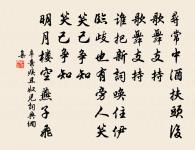 尋常中酒扶頭後
歌舞支持
歌舞支持
誰把新詞喚住伊
臨歧也有旁人笑
笑己爭知
笑己爭知
明月樓空燕子飛
辛棄疾丑奴兒詞典網
集